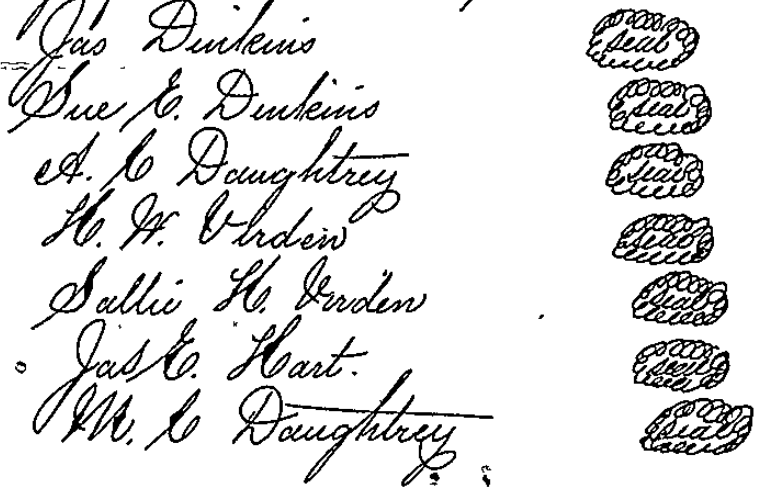 Jas Dinkins seal
Sue E. Dinkins seal
A. C Daughtrey seal
H. W. Virden seal
Sallie H. Virden seal
Jas E. Hart. seal
M. C Daughtrey seal